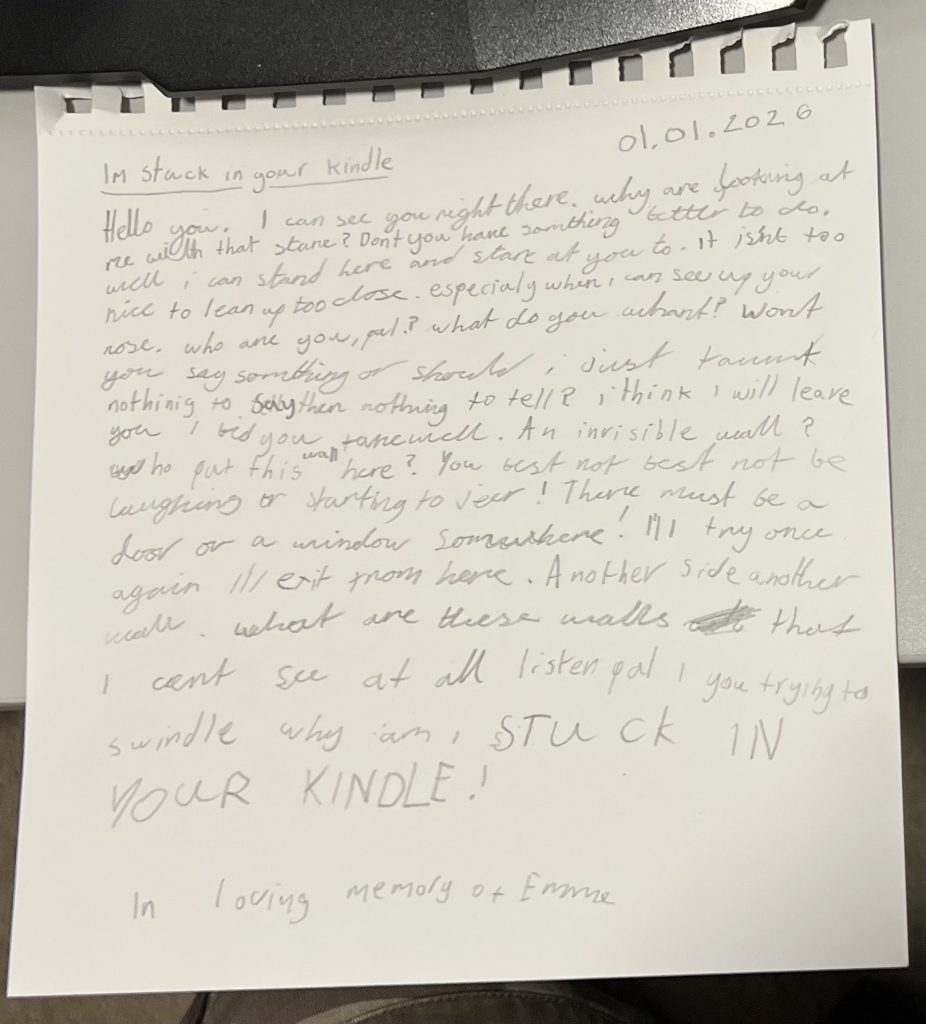 01.01.2026
Im stuck in your kindle
Hello you. I can see you right there. why are looking at
me with that stare? Dont you have somthing better to do.
well i can stand here and stare at you to. It isnt too
nice to lean up too close. especialy when i can see up your
nose. who are you, pal? what do you whant? Wont
you say somthing or should i just taunt
nothinig to say then nothing to tell? i think i will leave
you I bid you farewell. An invisible wall?
who put this wall here? You best not best not be
laughing or starting to jeer! There must be a
door or a window somewhere! I'll try once
again I'll exit from here. Another side another
wall. what are these walls that
I cant see at all listen pal, you trying to
swindle why am i STUCK IN
YOUR KINDLE!
In loving memory of